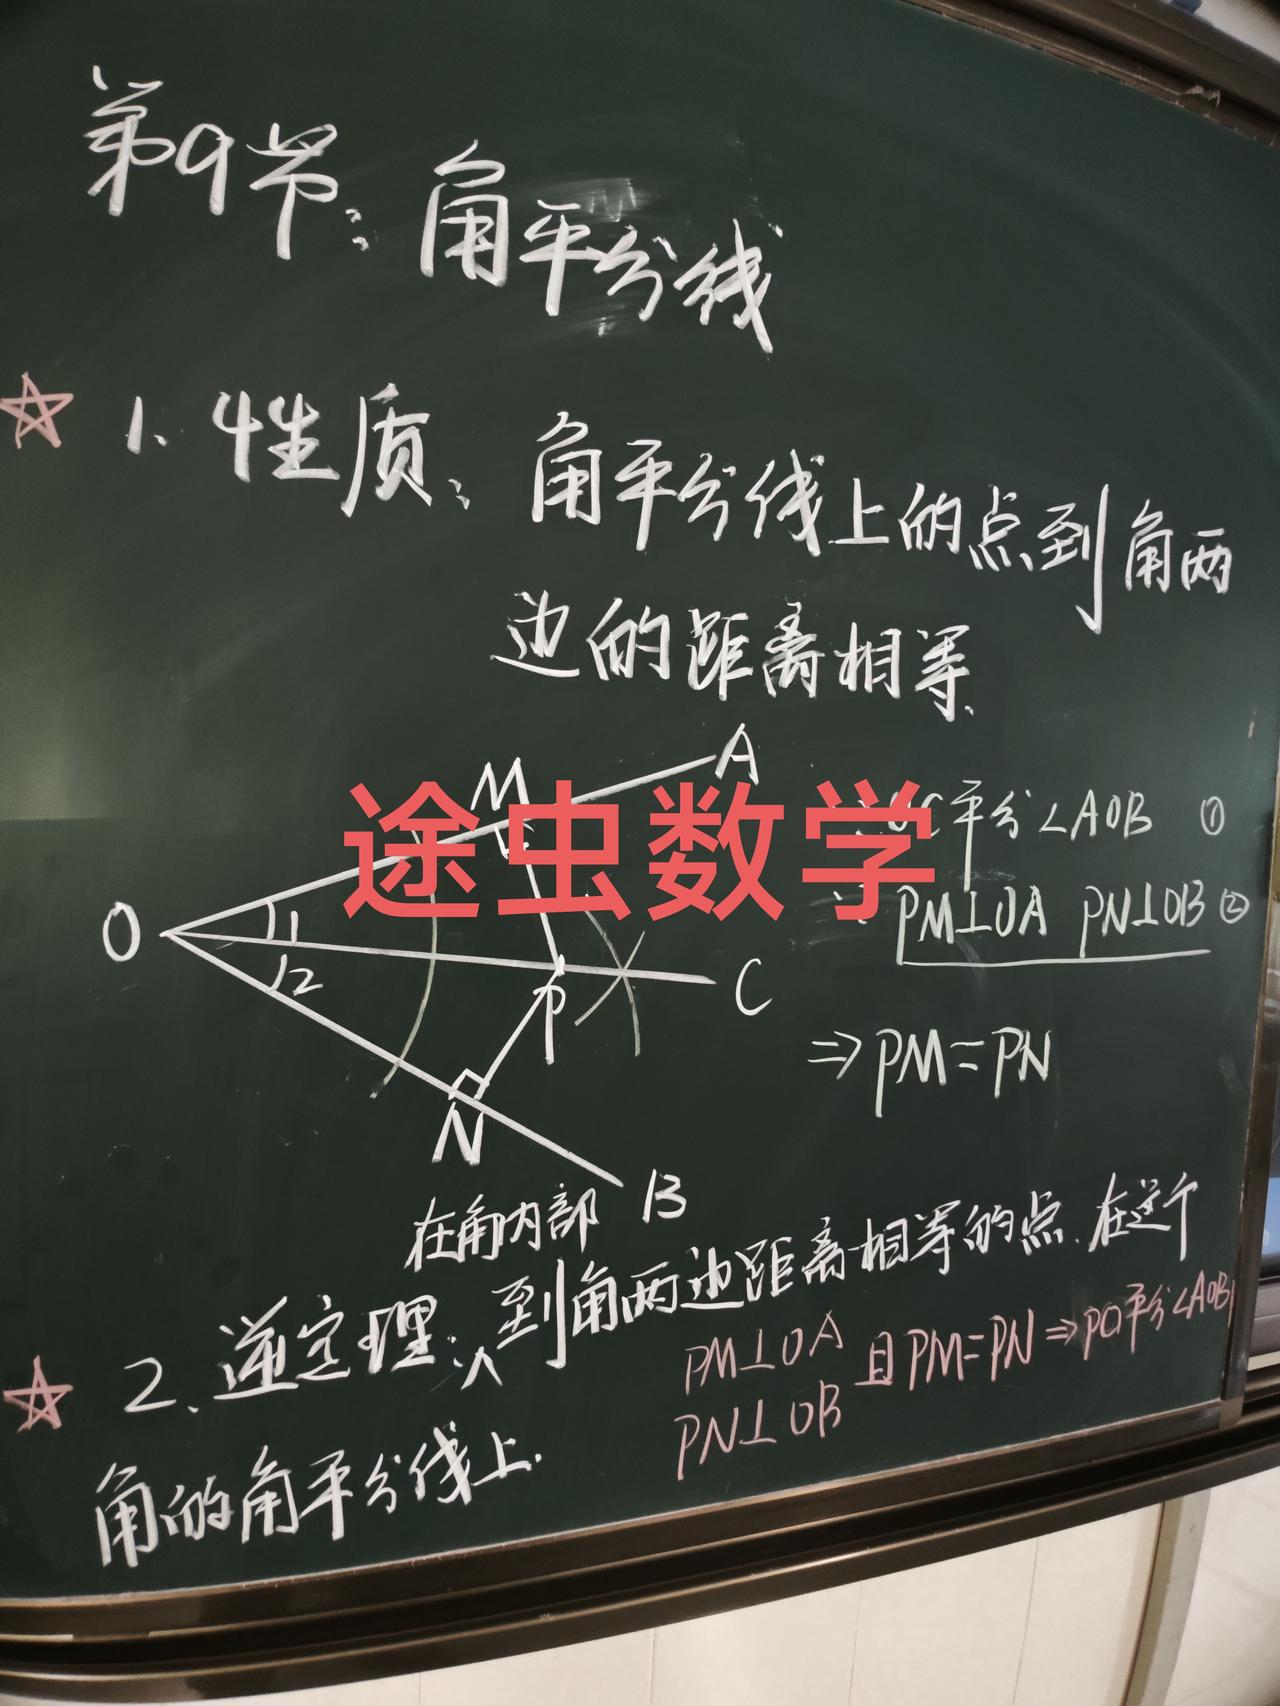 第9节:角平分线
☆ 1. 性质: 角平分线上的点到角两
边的距离相等.
A
M
途虫数学
OC平分∠AOB ①
PM⊥OA PN⊥OB ②
O
1
2
P
C
⇒PM=PN
N
B
在角内部
☆ 2. 逆定理:∧到角两边距离相等的点.在这个
角的角平分线上.
PM⊥OA
PN⊥OB
且PM=PN⇒PO平分∠AOB